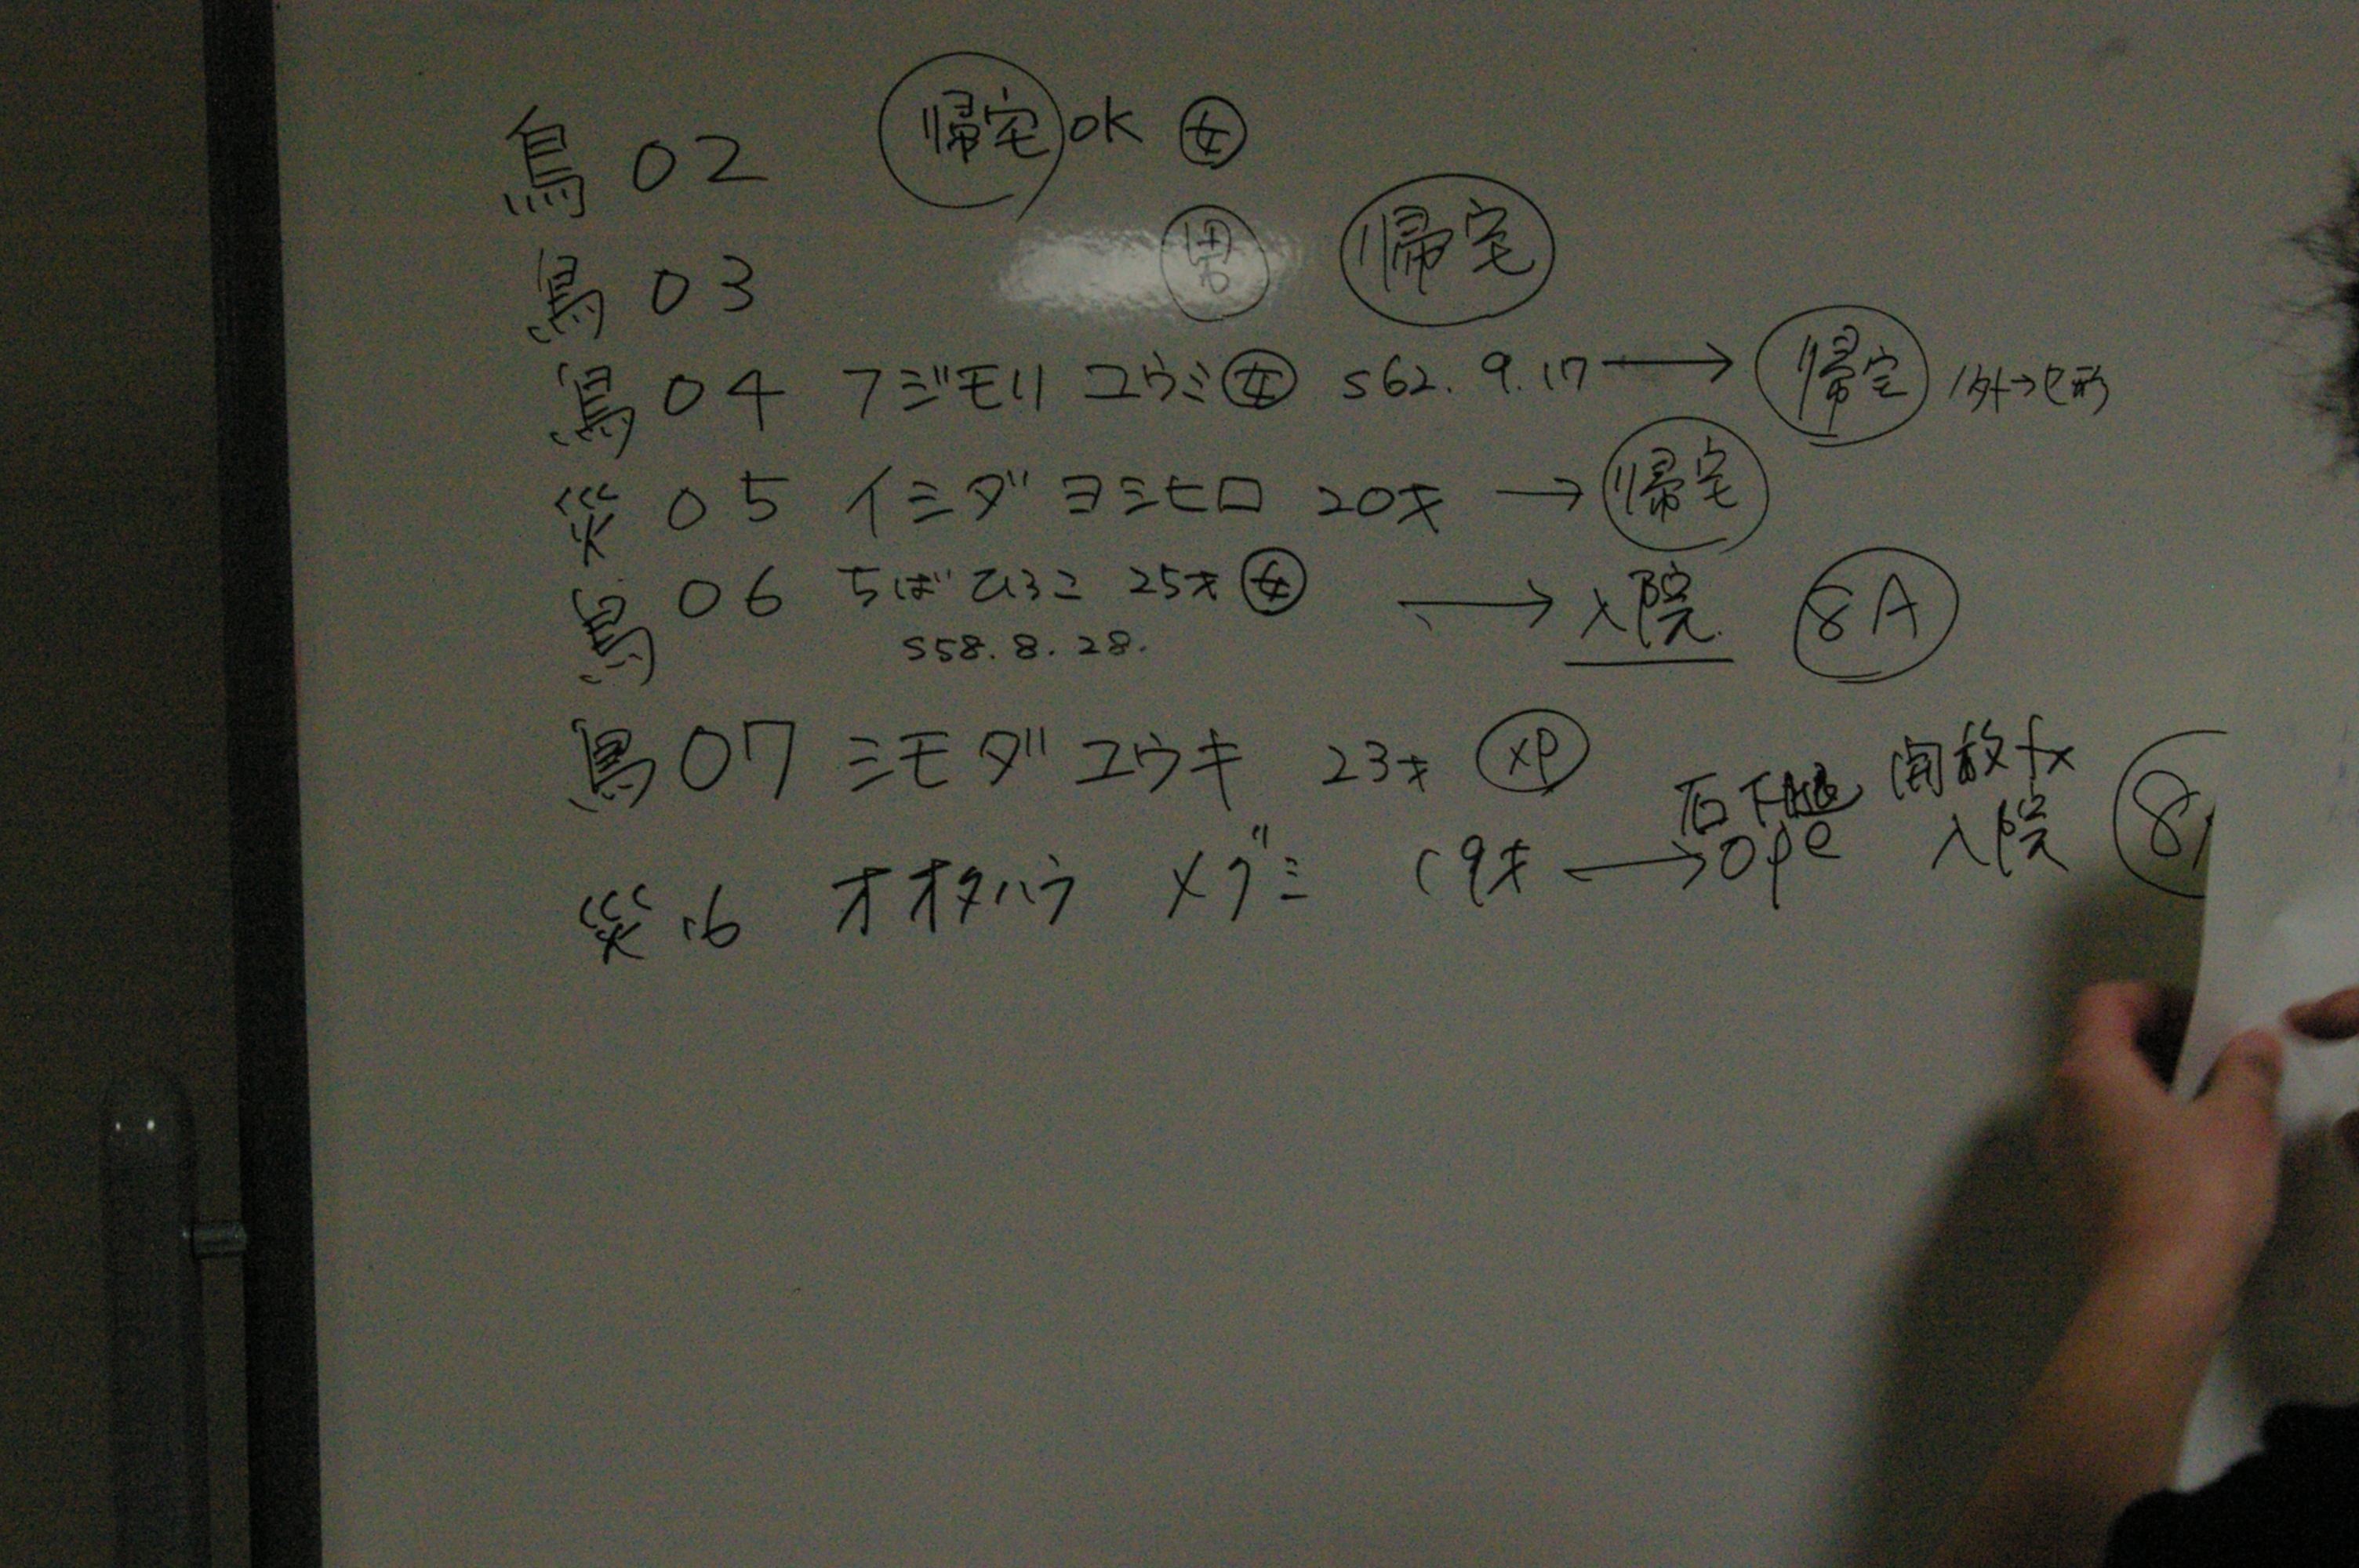 鳥 02 帰宅 OK 女
鳥 03 男 帰宅
鳥 04 フジモリ ユウミ 女 S62. 9. 17 → 帰宅
災 05 イシダ ヨシヒロ 20才 → 帰宅
鳥 06 ちば ひろこ 25才 女 → 入院 8A
S58. 8. 28.
鳥 07 シモダ ユウキ 23才 XP
右下腿 開放fx
災 16 オオタハラ メグミ 19才 → ope 入院 8